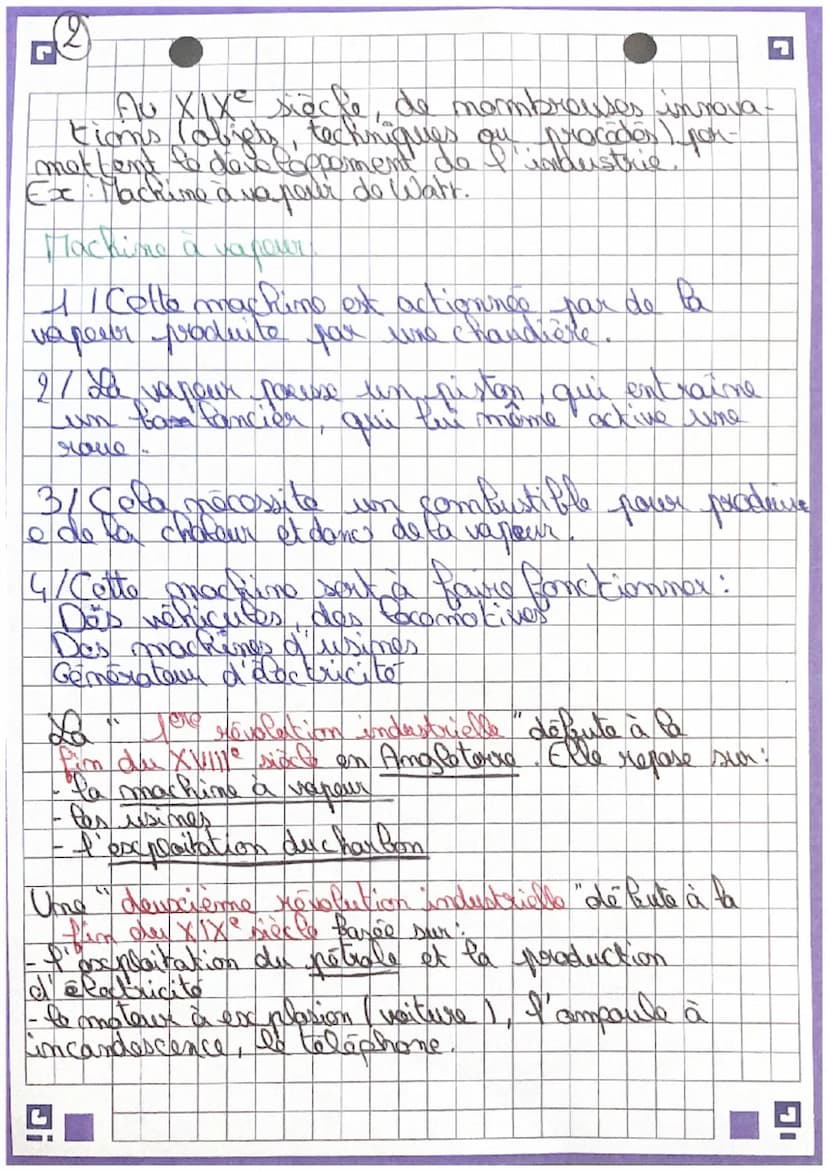 2
Au XIXe siècle, de nombreuses innova-
tions (objets, techniques ou procédés) per-
mettent le développement de l'industrie.
Ex : Machine à vapeur de Watt.
Machine à vapeur.
1 / Cette machine est actionnée par de la
vapeur produite par une chaudière.
2 / La vapeur pousse un piston, qui entraine
un balancier, qui lui même active une
roue.
3/ Cela nécessite un combustible pour produire
e de la chaleur et donc de la vapeur.
4/Cette machine sert à faire fonctionner :
Des véhicules, des locomotives
Des machines d'usines
Générateur d'électricité
La " 1ere révolution industrielle " débute à la
fin du XVIIIe siècle en Angleterre. Elle repose sur :
- la machine à vapeur
- les usines
- l'exploitation du charbon
Une " deuxième révolution industrielle " débute à la
fin du XIXe siècle basée sur :
- l'exploitation du pétrole et la production
d'électricité
- le moteur à explosion (voiture), l'ampoule à
incandescence, le téléphone.